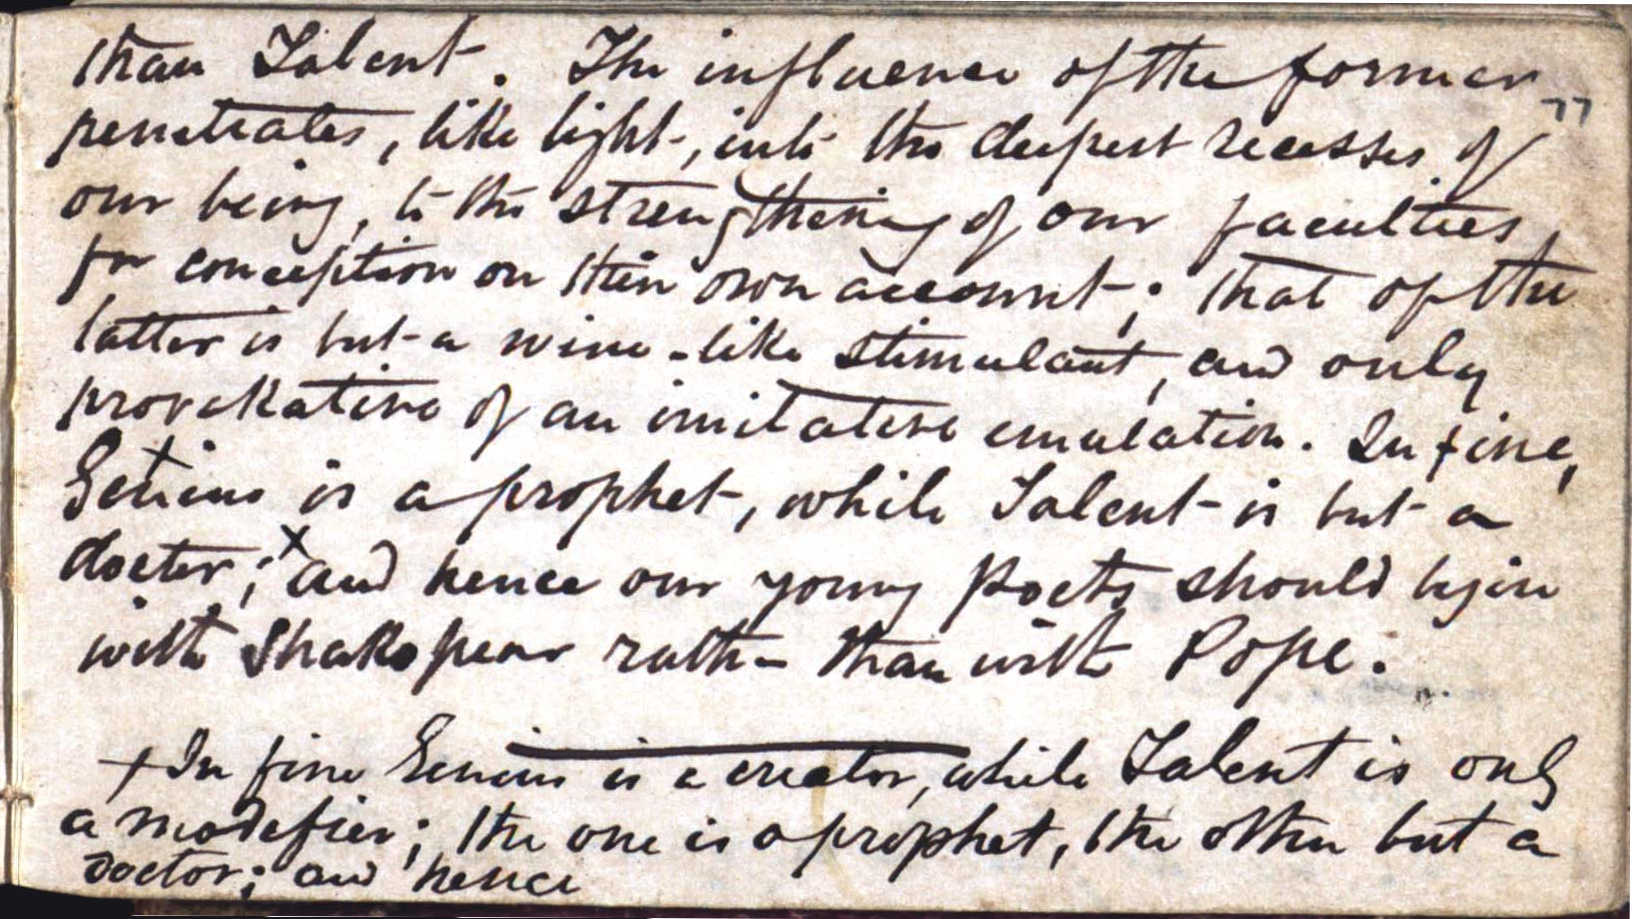 than Talent. The influence of the former
77
penetrates, like light, into the deepest recesses of
our being, to the strengthening of our faculties
for conception on their own account; that of the
latter is but a wine-like stimulant, and only
provokative of an imitative emulation. In fine,
Genius is a prophet, while Talent is but a
doctor; x and hence our young Poets should begin
with Shakspear rather than with Pope.
+ In fine Genius is a creator, while Talent is only
a modefier; the one is a prophet, the other but a
doctor; and hence